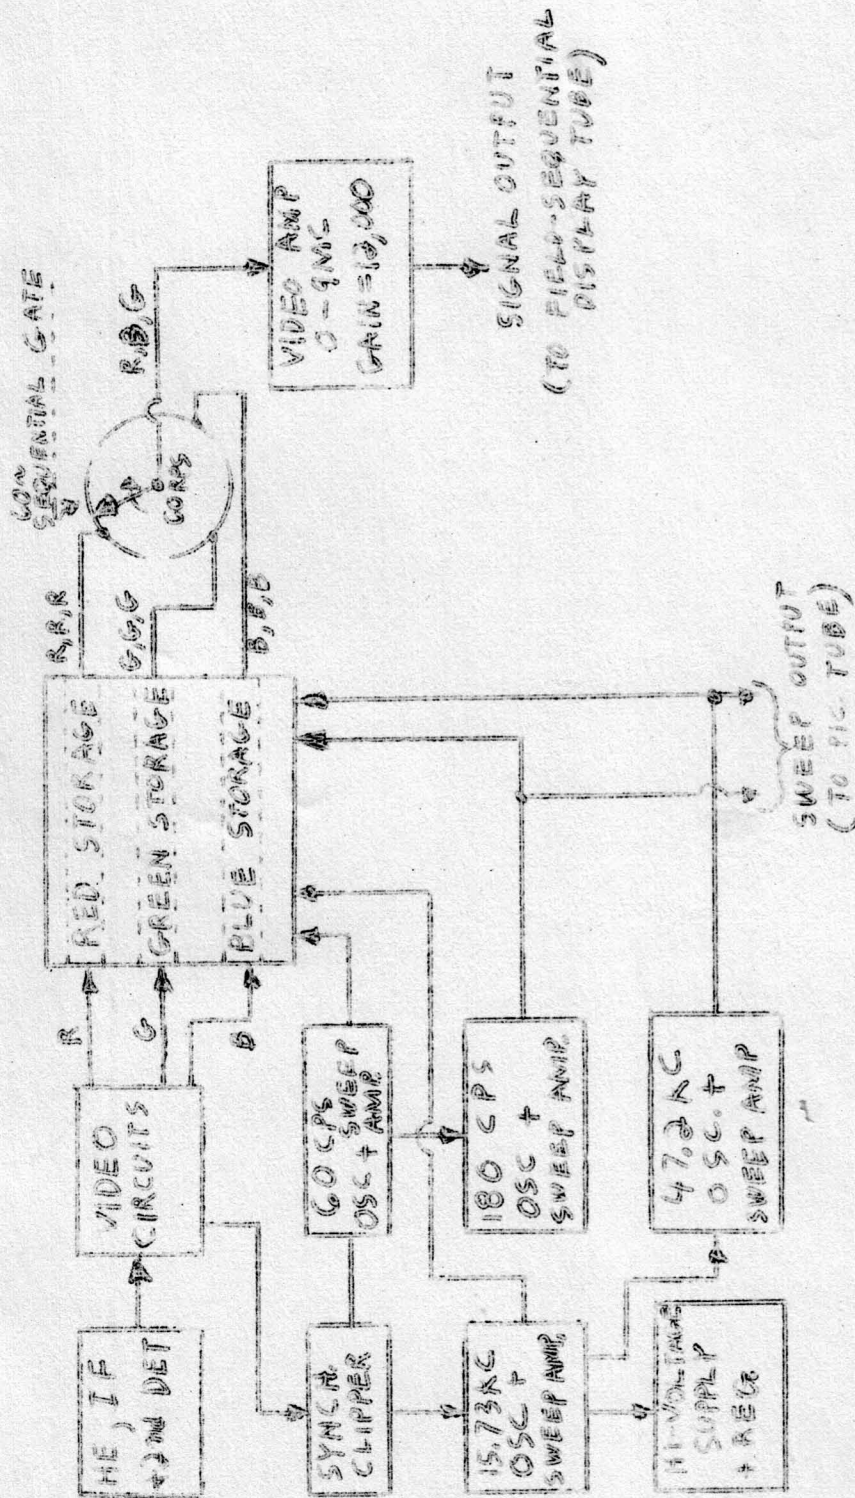 HE, IF
+ 2nd DET
VIDEO
CIRCUITS
R
G
B
RED STORAGE
GREEN STORAGE
BLUE STORAGE
R,R,R
G,G,G
B,B,B
60~
SEQUENTIAL GATE
60 RPS
R,B,G
VIDEO AMP
0-9MC
GAIN=12,000
SIGNAL OUTPUT
(TO FIELD-SEQUENTIAL
DISPLAY TUBE)
SYNCH.
CLIPPER
60 CPS
OSC + SWEEP
AMP.
15.73KC
OSC +
SWEEP AMP.
180 CPS
OSC +
SWEEP AMP.
HI-VOLTAGE
SUPPLY
+ REG.
47.2 KC
OSC. +
SWEEP AMP
SWEEP OUTPUT
(TO PIC. TUBE)